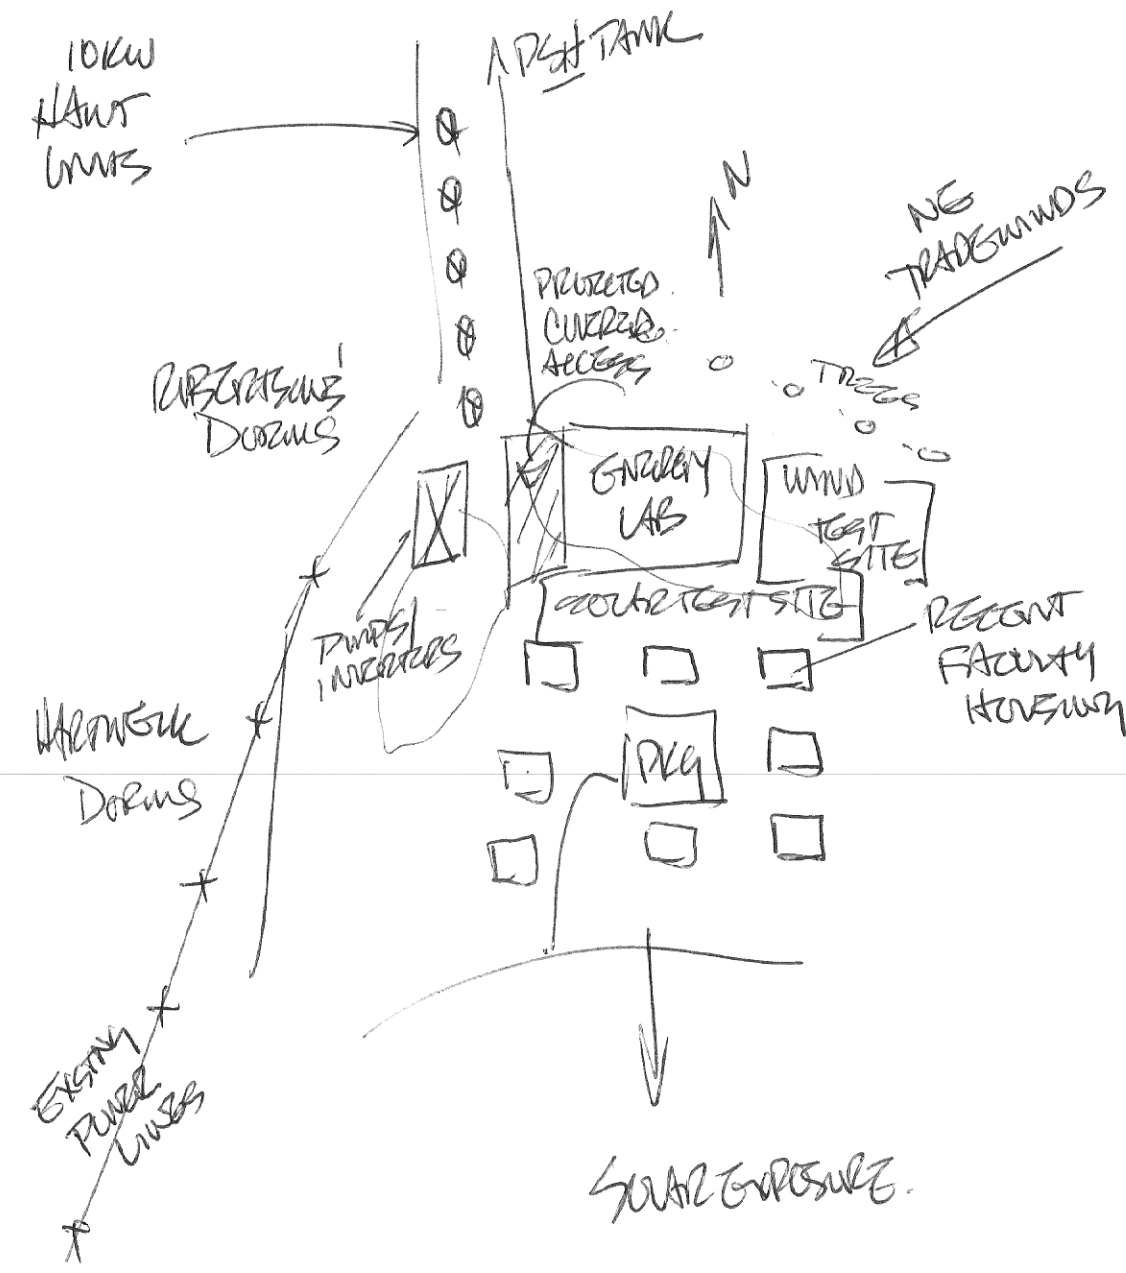 10KW
HAWT
UNITS
PSH TANK
N
NE
TRADEWINDS
PROTECTED
COVERED
ACCESS
TREES
ROBERTSONS'
DORMS
ENERGY
LAB
WIND
TEST
SITE
SOLAR TEST SITE
PUMPS/
INVERTERS
RECENT
FACULTY
HOUSING
HARTWELL
DORMS
PKG
EXISTING
POWER
LINES
SOLAR EXPOSURE.